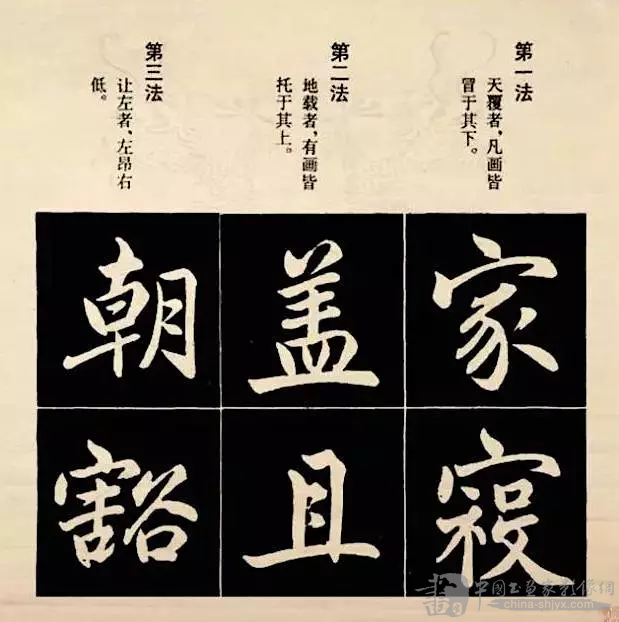 第一法
天覆者，凡画皆
冒于其下。
第二法
地载者，有画皆
托于其上。
第三法
让左者，左昂右
低。
家
盖
且
朝
豁
中國书画家影像網
china-shjyx.com